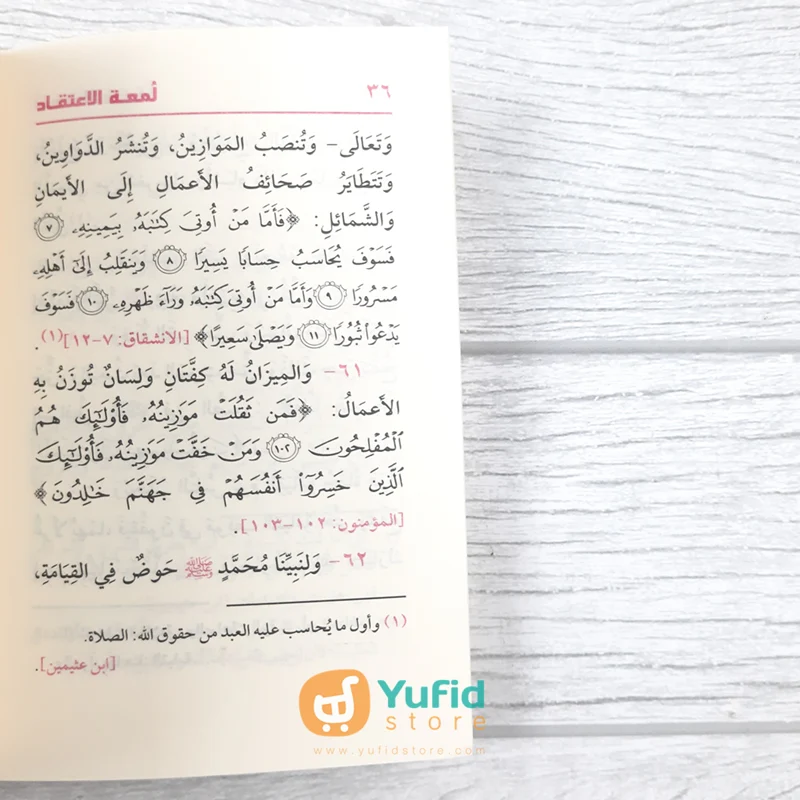 ٣٦ لمعة الاعتقاد
وَتَعَالَى- وَتُنصَبُ المَوَازِينُ، وَتُنشَرُ الدَّوَاوِينُ،
وَتَتَطَايَرُ صَحَائِفُ الأَعمَالِ إِلَى الأَيمَانِ
وَالشَّمَائِلِ: ﴿فَأَمَّا مَنۡ أُوتِيَ كِتَٰبَهُۥ بِيَمِينِهِۦ ٧
فَسَوۡفَ يُحَاسَبُ حِسَابٗا يَسِيرٗا ٨ وَيَنقَلِبُ إِلَىٰٓ أَهۡلِهِۦ
مَسۡرُورٗا ٩ وَأَمَّا مَنۡ أُوتِيَ كِتَٰبَهُۥ وَرَآءَ ظَهۡرِهِۦ ١٠ فَسَوۡفَ
يَدۡعُواْ ثُبُورٗا ١١ وَيَصۡلَىٰ سَعِيرًا﴾ [الانشقاق: ٧-١٢](١).
٦١- وَالمِيزَانُ لَهُ كِفَّتَانِ وَلِسَانٌ تُوزَنُ بِهِ
الأَعمَالُ: ﴿فَمَن ثَقُلَتۡ مَوَٰزِينُهُۥ فَأُوْلَٰٓئِكَ هُمُ
ٱلۡمُفۡلِحُونَ ١٠٢ وَمَنۡ خَفَّتۡ مَوَٰزِينُهُۥ فَأُوْلَٰٓئِكَ
ٱلَّذِينَ خَسِرُوٓاْ أَنفُسَهُمۡ فِي جَهَنَّمَ خَٰلِدُونَ﴾
[المؤمنون: ١٠٢-١٠٣].
٦٢- وَلِنَبِيِّنَا مُحَمَّدٍ ﷺ حَوضٌ فِي القِيَامَةِ،
(١) وأول ما يُحاسب عليه العبد من حقوق الله: الصلاة.
[ابن عثيمين].
Yufid
store
www.yufidstore.com